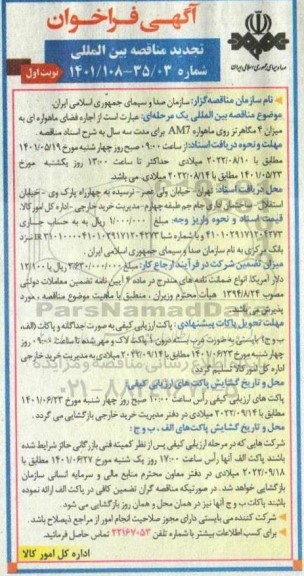 آگهی فراخوان
تجدید مناقصه بین المللی
شماره ۱۴۰۱/۱۰۸-۳۵/۰۳
نوبت اول
صدا و سیمای جمهوری اسلامی ایران
نام سازمان مناقصه گزار: سازمان صدا و سیمای جمهوری اسلامی ایران.
موضوع مناقصه بین المللی یک مرحله‌ای: عبارت است از اجاره فضای ماهواره ای به
میزان ۴ مگاهرتز روی ماهواره AM7 برای مدت سه سال به شرح اسناد مناقصه.
مهلت و نحوه دریافت اسناد: از ساعت ۰۹:۰۰ صبح روز چهار شنبه مورخ ۱۴۰۱/۰۵/۱۹
مطابق با ۲۰۲۲/۰۸/۱۰ میلادی حداکثر تا ساعت ۱۳:۰۰ روز یکشنبه مورخ
۱۴۰۱/۰۵/۲۳ مطابق با ۲۰۲۲/۰۸/۱۴ میلادی، می باشد.
محل دریافت اسناد: تهران- خیابان ولی عصر- نرسیده به چهارراه پارک وی- خیابان
استقلال- ساختمان اداری جام جم طبقه چهارم- مدیریت خرید خارجی- اداره کل امور کالا.
قیمت اسناد و نحوه واریز وجه: مبلغ ۱/۰۰۰/۰۰۰ ریال به به حساب جاری
بانک مرکزی به نام سازمان صدا و سیمای جمهوری اسلامی ایران.
میزان تضمین شرکت در فرآیند ارجاع کار: مبلغ ۲/۶۳۰/۰۰۰/۰۰۰ ریال یا ۱۲/۱۰۰
دلار آمریکا انواع ضمانت نامه های مندرج در ماده ۴ آیین نامه تضمین معاملات دولتی
مورخ ۱۳۹۴/۸/۲۴ مصوب هیأت محترم وزیران، منطبق با ماهیت موضوع مناقصه، مورد
پذیرش می باشد.
مهلت تحویل پاکات پیشنهادی: پاکت ارزیابی کیفی به صورت جداگانه و پاکات (الف،
ب و ج) بایستی به صورت مرتب بسته درون ۱ پاکت لاک و مهر شده تا ساعت ۰۹:۰۰ روز
چهارشنبه مورخ ۱۴۰۱/۰۶/۲۳ مطابق با ۲۰۲۲/۰۹/۱۴ میلادی به مدیریت خرید خارجی
اداره کل امور کالا تسلیم گردد.
محل و تاریخ گشایش پاکت های ارزیابی کیفی:
پاکت های ارزیابی کیفی رأس ساعت ۱۰:۰۰ صبح روز چهار شنبه مورخ ۱۴۰۱/۰۶/۲۳
مطابق با ۲۰۲۲/۰۹/۱۴ میلادی در دفتر مدیریت خرید خارجی بازگشایی می گردد.
محل و تاریخ گشایش پاکت‌های الف، ب و ج:
شرکت هایی که در مرحله ارزیابی کیفی پس از نظر کمیته فنی بازرگانی حائز شرایط شده
باشند پاکت الف آنها رأس ساعت ۱۷:۰۰ روز یک شنبه مورخ ۱۴۰۱/۰۶/۲۷ مطابق با
۲۰۲۲/۰۹/۱۸ میلادی در دفتر معاون محترم منابع مالی و سرمایه انسانی سازمان
بازگشایی خواهد شد. در صورتیکه مناقصه گران تضمین کافی در پاکت الف ارائه نموده
باشند پاکات ب و ج آنها نیز در همان محل و همان روز بازگشایی می شود.
شرکت کننده می بایستی دارای مجوز صلاحیت انجام امور از مراجع ذیصلاح باشد.
برای کسب اطلاعات بیشتر با شماره تلفن ۲۲۱۶۷۰۵۳ تماس حاصل فرمائید
اداره کل امور کالا